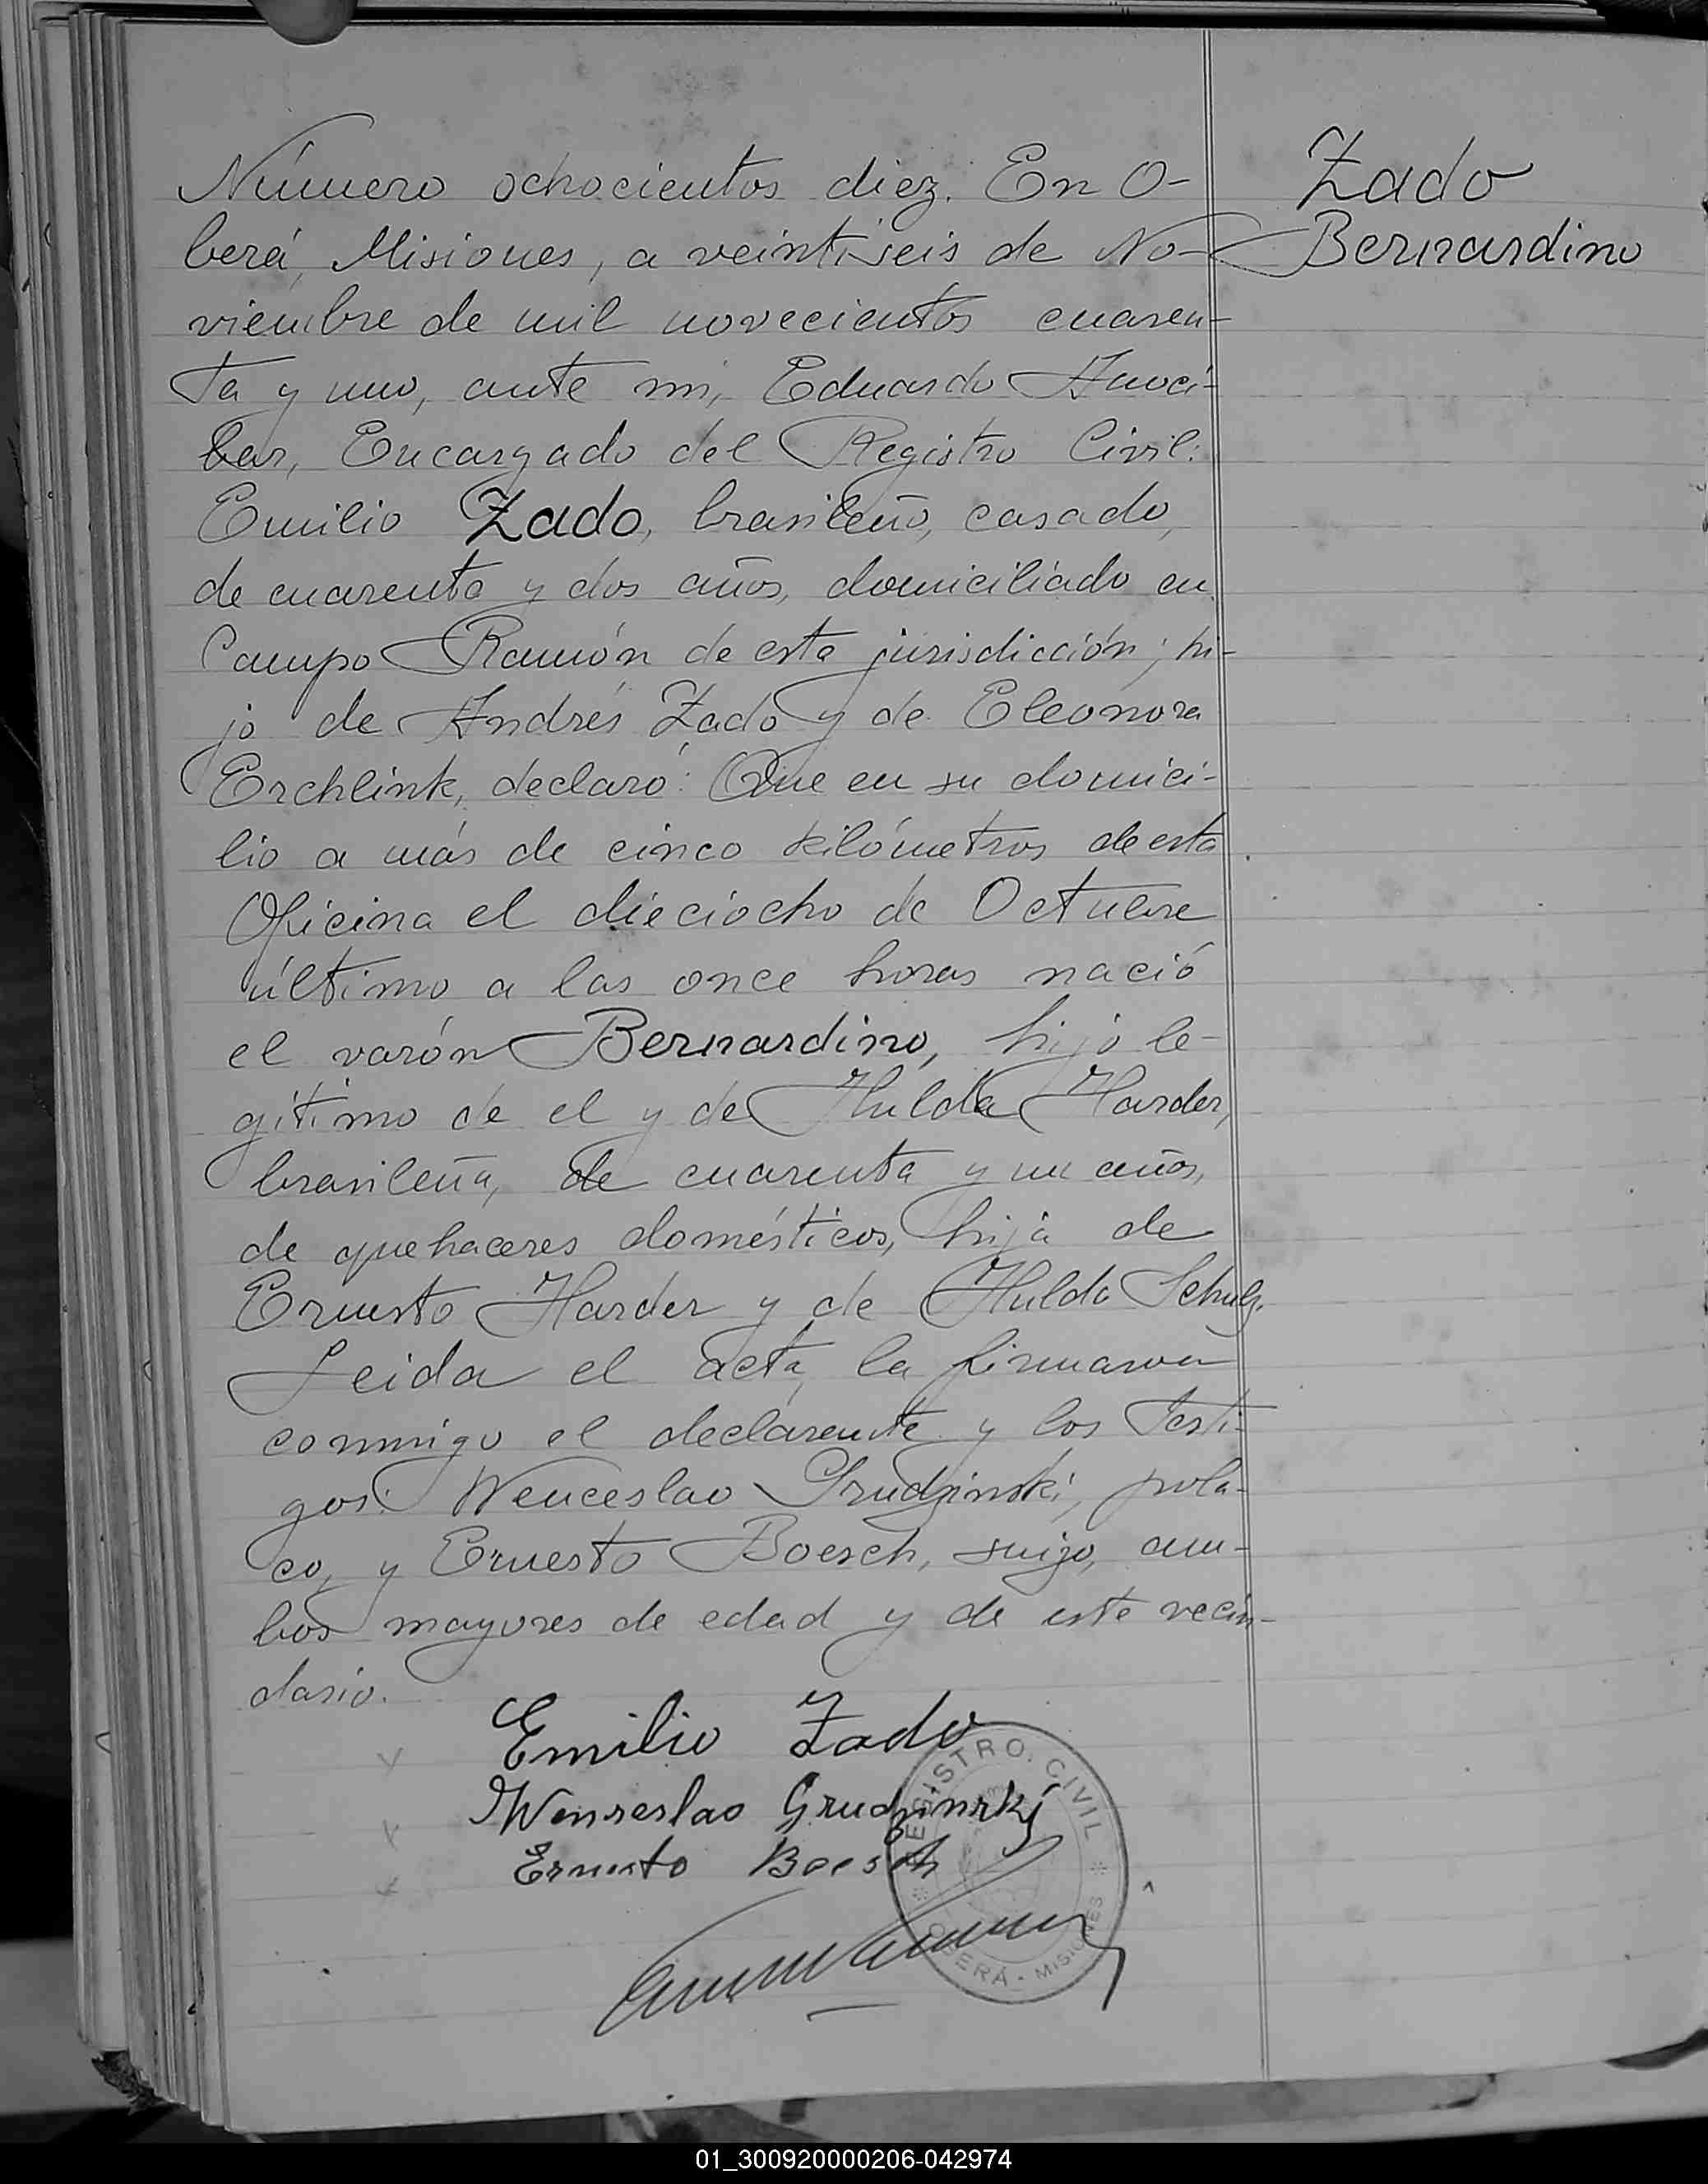 Número ochocientos diez. En O-
berá, Misiones, a veintiseis de No-
viembre de mil novecientos cuaren-
ta y uno, ante mi, Eduardo
Encargado del Registro Civil:
Emilio Zado, brasileño, casado,
de cuarenta y dos años, domiciliado en
Campo Ramón de esta jurisdicción; hi-
jo de Andrés Zado y de Eleonora
Erchlink, declaró: Que en su domici-
lio a más de cinco kilómetros de esta
Oficina el dieciocho de Octubre
último a las once horas nació
el varón Bernardino, hijo le-
gítimo de el y de Hulda Harder,
brasileña, de cuarenta y un años,
de quehaceres domésticos, hija de
Ernesto Harder y de Hulda Schulz.
Leida el acta, la firmaron
conmigo el declarante y los testi-
gos: Wenceslao Grudzinski, pola-
co, y Ernesto Boesch, suizo, am-
bos mayores de edad y de este vecin-
dario.
Zado
Bernardino
Emilio Zado
Wenseslao Grudzinski
Ernesto Boesch
REGISTRO CIVIL
OBERÁ - MISIONES
01_300920000206-042974